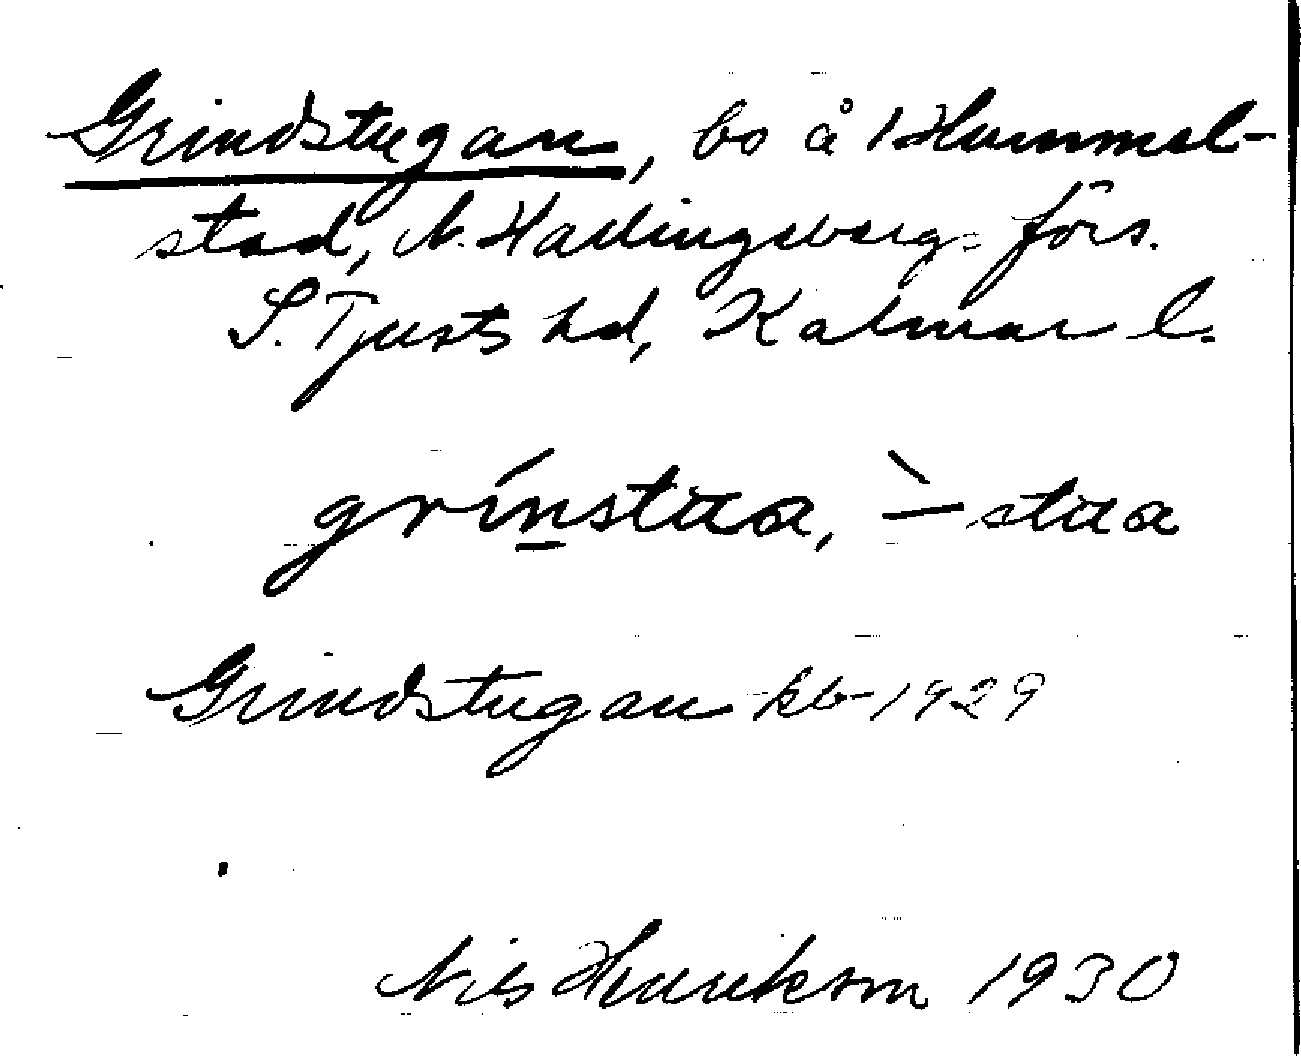 Grindstugan, bo å 1 Hummel-
stad, N. Hallingebergs förs.
S. Tjusts hd, Kalmar l.
grínstua, `–stua
Grindstugan kb 1929
Nils Henrikson 1930